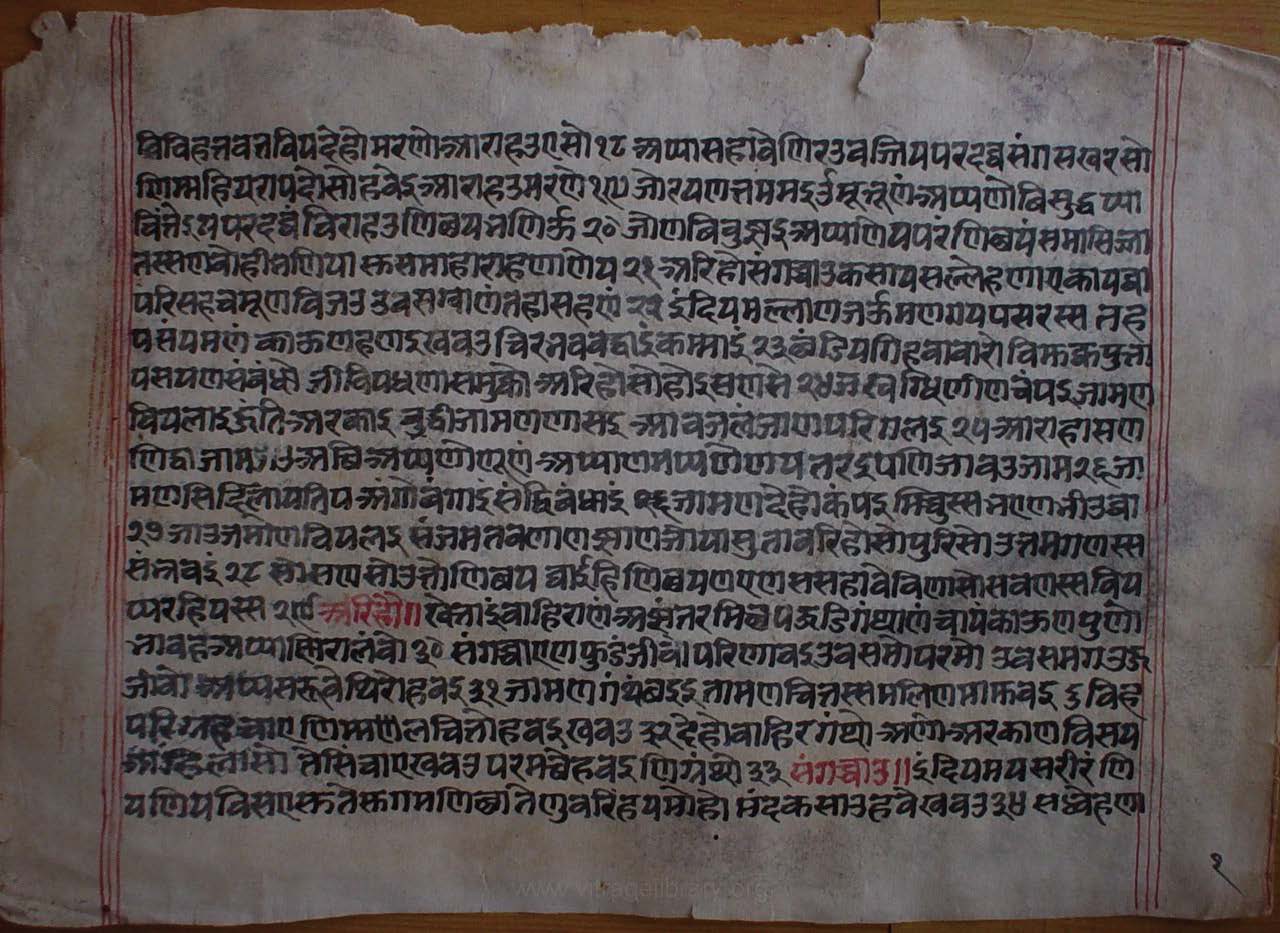 विविहत्तवत्तवियदेहो मरणेआराहउएसो १८ अप्पासहावेणिरउवज्जियपरदव्वसंगसुखरसो
णिम्महियरायदोसो हवेइआराहउमरणे १९ जोरयणत्तयमइउमूत्तूणंअप्पणोविसुद्धप्पा
चिंतेइयपरदव्वंविराहउणिछयभणिऊ २० जोणविबुज्झइअप्पाणियपरंणिछयंसमासिज्जा
तस्सणबोहीभणिया समाहाराहणाणेय २१ अरिहोसंगच्चाउकसायसल्लेहणाएकायव्वा
परिसहचमूणविजउउवसग्गाणंतहासहणं २२ इंदियमल्लाणजऊमणगयपसरस्स तह
यसंयमणं काऊणहणइखवउचिरभवबद्धाइंकम्माइं २३ छंडियगिहवावारो विमुक्कपुत्ता
यसयणसंबंधो जीवियधणासमुक्को अरिहोसोहोइसणासे २४ णचंपइजामण
वियलाइंजंतिअरकाइं बुद्धीजामणणासइ आवजलंजाणपरिगलइ २५ आराहासण
णिद्दाजाम अप्पणोणूणं अप्पाणमप्पणेणय तरइपणिजावउजाम२६ जा
मणसिढिलायतिय अंगोवंगाइंसंद्दिबंधाइं २६ जामणदेहोकंपइ मिच्चुस्सभएणभीउव्वा
२७ जाउजमोणवियलइ संजमतवणाणझाणजोयासुतावरिहोसोपुरिसोउत्तमगणस्स
संभवइं २८ सोसणसोउत्तोणिछय वाईहिंणिछयणएण ससहावेविणासोसवणस्सविय
प्परहियस्स २९ अरिहो॥ खेत्ताइंबाहिराणंअब्भंतरमिछपऊडिगंथाणंचायंकाऊणपुणो
भावहअप्पाणिरालंबो ३० संगच्चाएणफुडंजीवो परिणावइउवसमोपरमो उवसमगउऊ
जीवो अप्पसरूवेथिरोहवइ ३१ जामणगंथंछडइ तामणचित्तस्समलिणमामुवइ दुविह
परिग्गहचाएणिम्मलचित्तोहवइखवउ ३२ देहोबाहिरगंथो अणेअरकाणविसय
अहिलासो तेसिंचाएखवउपरमछेहवइणिग्गंथो ३३ संगच्चाउ॥ इंदियमयसरीरंणि
यणियविसएसुतेसुगमणिछातेणुवरिंहयमोहो मंदकसाउहवेखवउ३४ सल्लेहणा
१
www.vitragelibrary.org